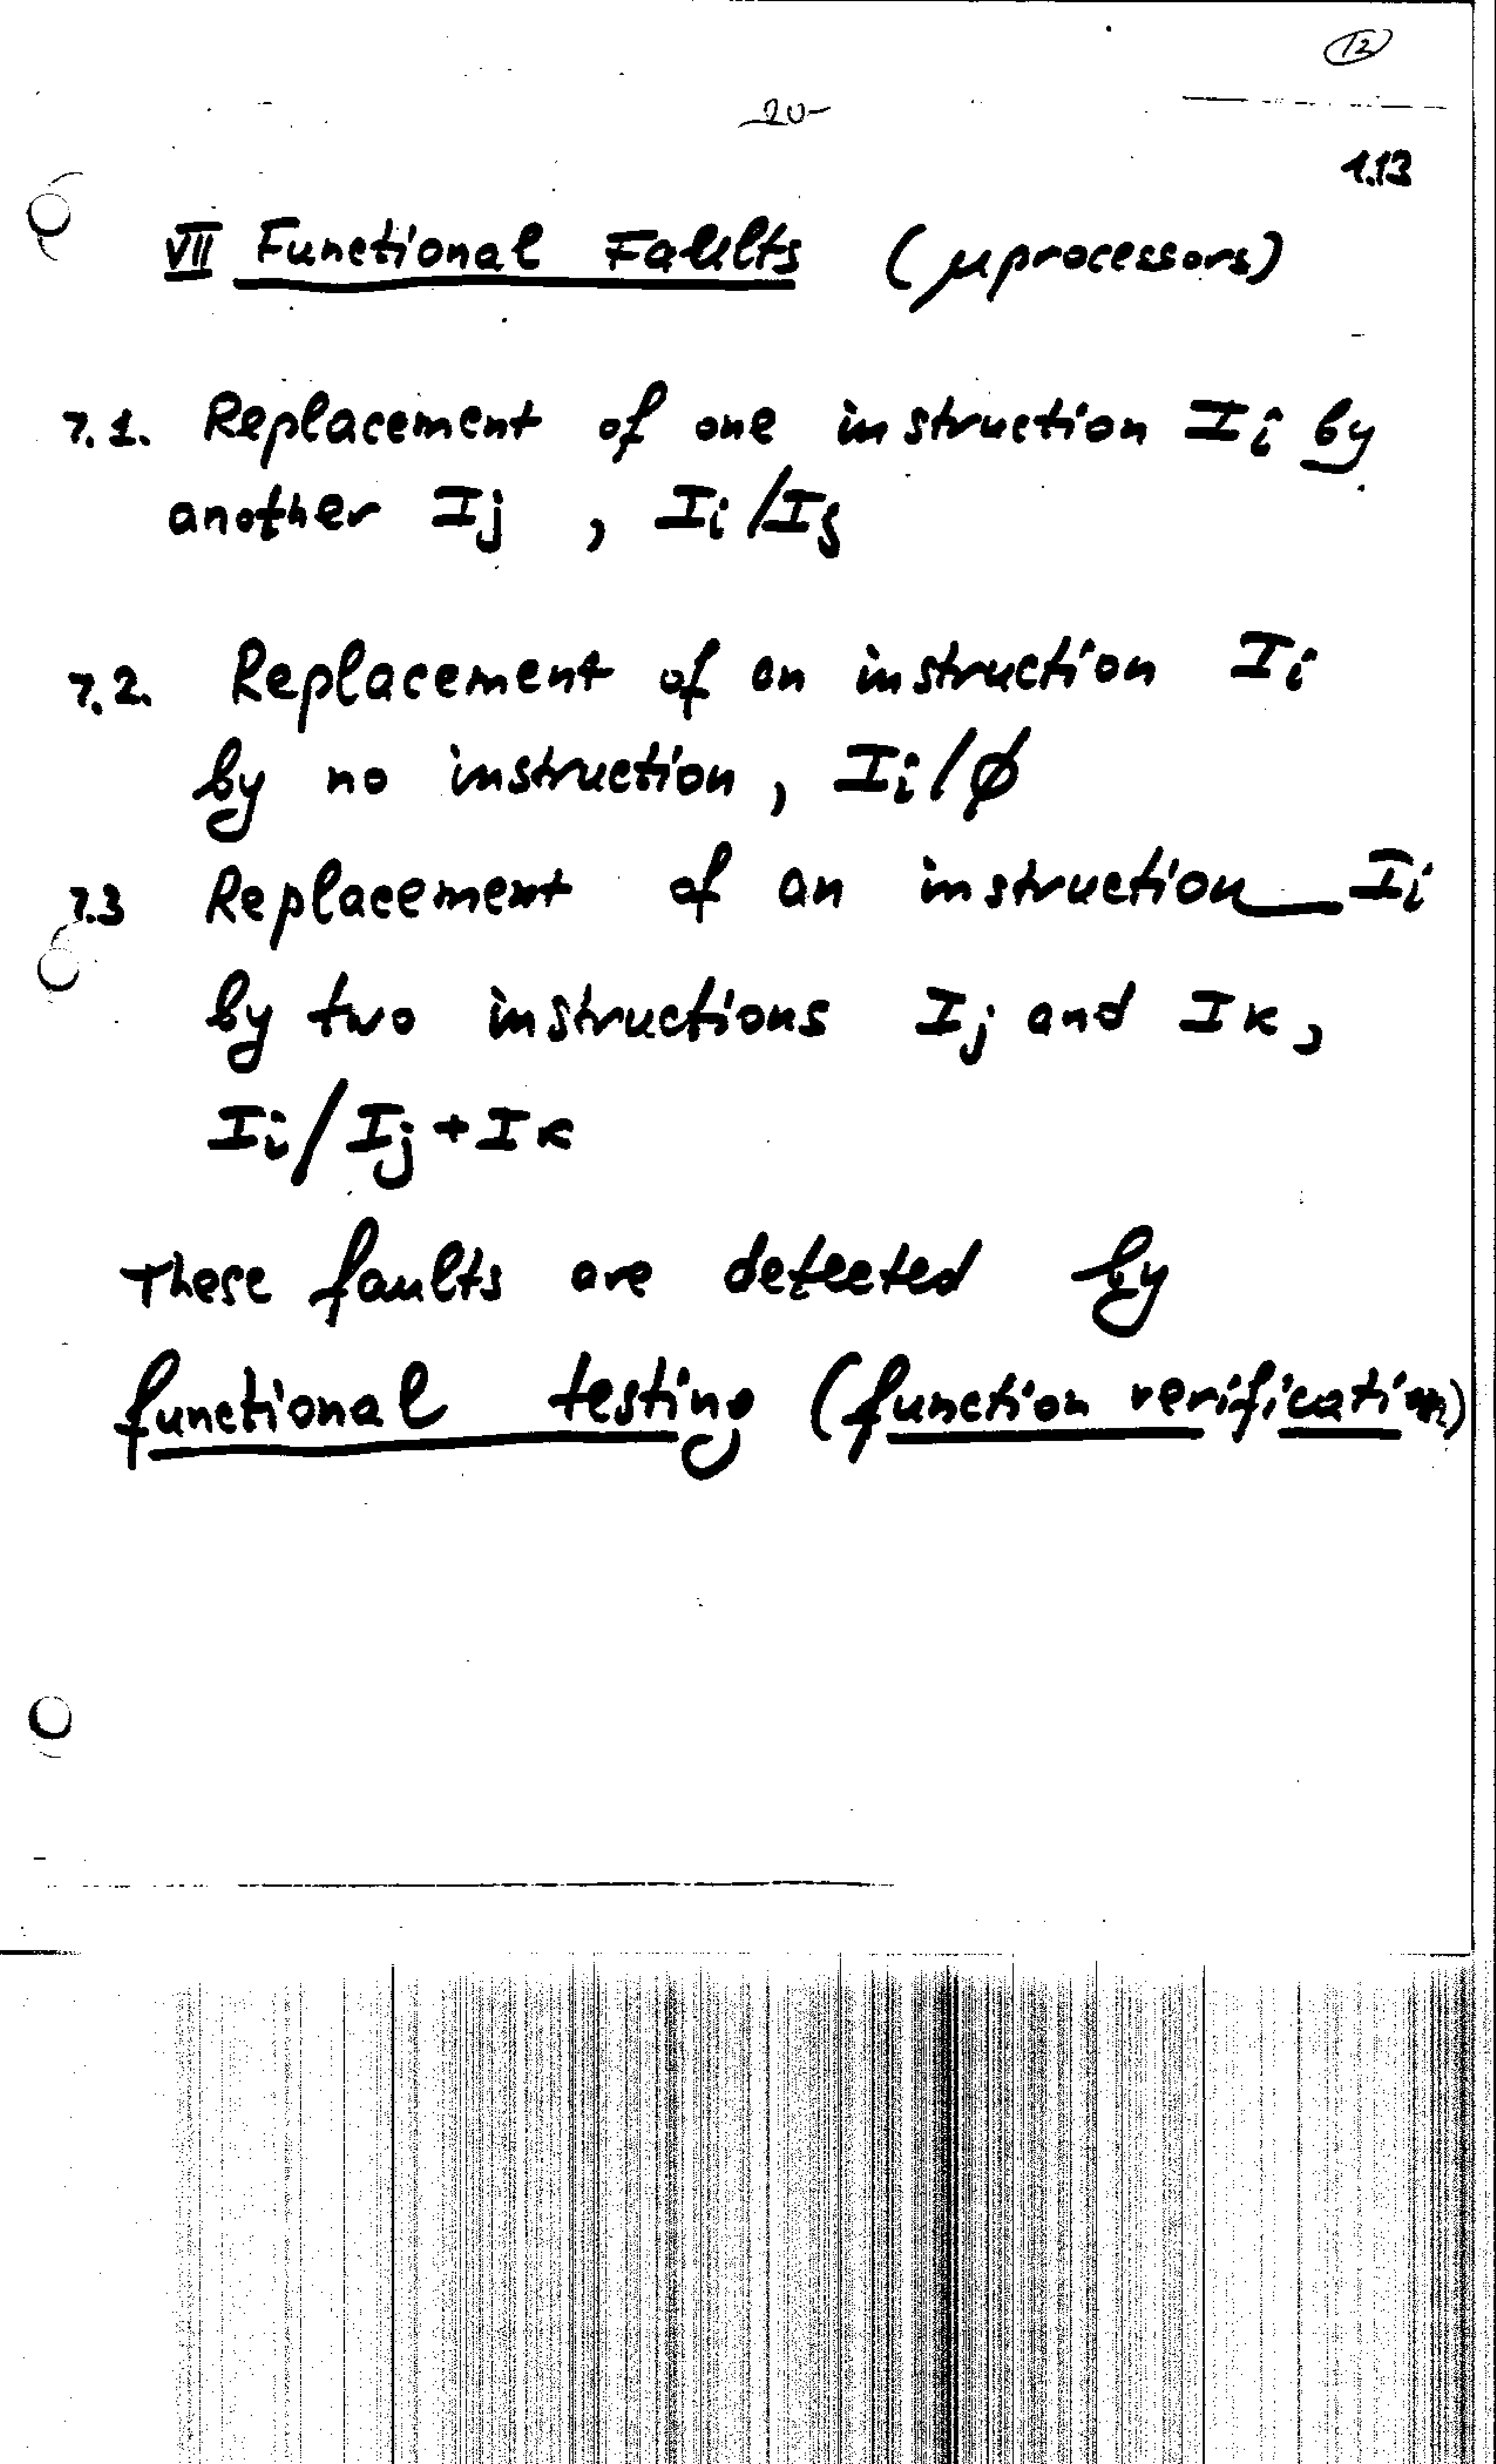 12
20
1.13
VII Functional Faults (μprocessors)
7.1. Replacement of one instruction Ii by
another Ij , Ii/Ij
7.2. Replacement of an instruction Ii
by no instruction, Ii/ø
7.3 Replacement of an instruction Ii
by two instructions Ij and Ik,
Ii/Ij+Ik
These faults are detected by
functional testing (function verification)